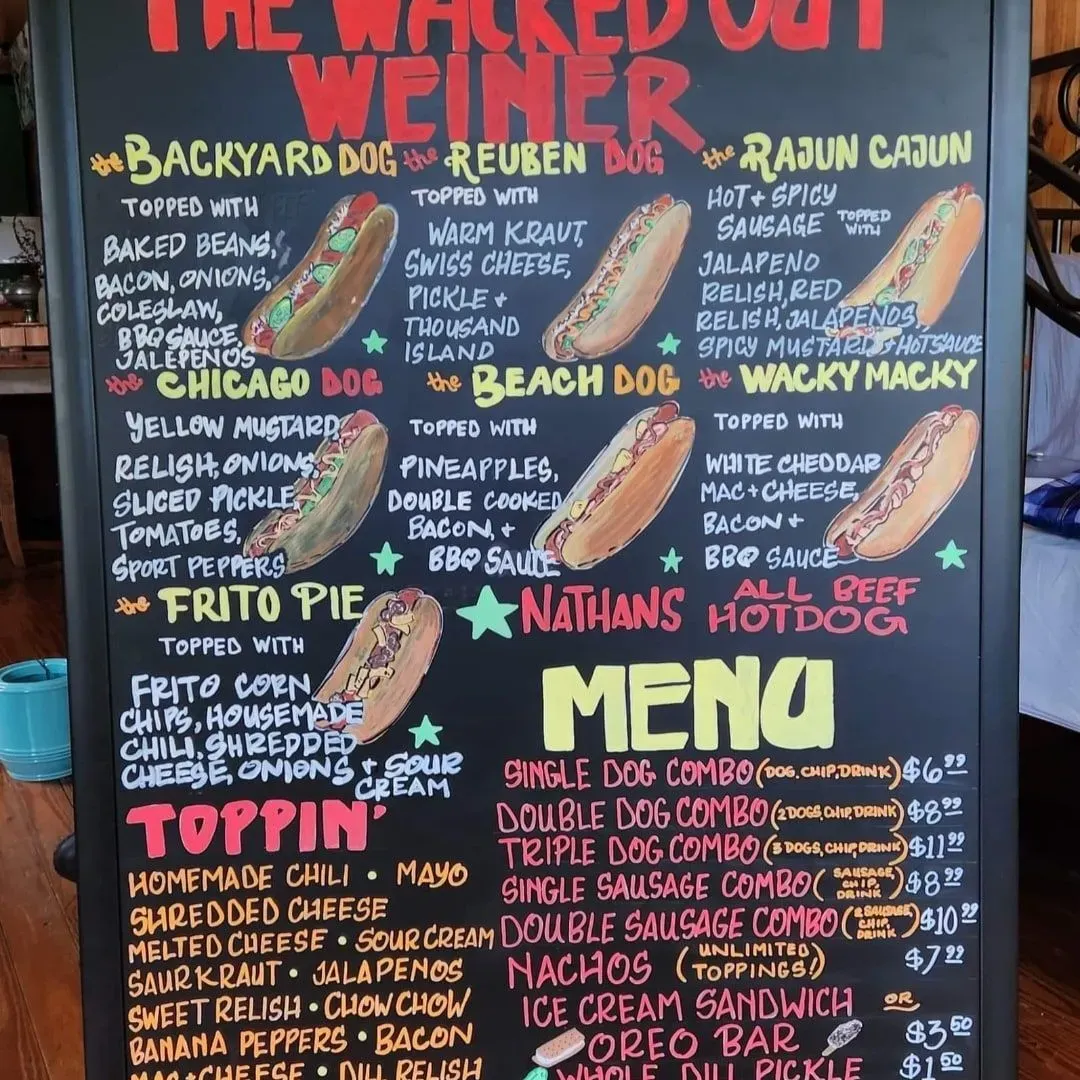 THE WACKED OUT
WEINER
the BACKYARD DOG
TOPPED WITH
BAKED BEANS,
BACON, ONIONS,
COLESLAW,
BBQ SAUCE,
JALEPENOS
the REUBEN DOG
TOPPED WITH
WARM KRAUT,
SWISS CHEESE,
PICKLE +
THOUSAND
ISLAND
the RAJUN CAJUN
HOT + SPICY
SAUSAGE TOPPED WITH
JALAPENO
RELISH, RED
RELISH, JALAPEÑOS,
SPICY MUSTARD + HOT SAUCE
the CHICAGO DOG
YELLOW MUSTARD,
RELISH, ONIONS,
SLICED PICKLE,
TOMATOES,
SPORT PEPPERS
the BEACH DOG
TOPPED WITH
PINEAPPLES,
DOUBLE COOKED
BACON, +
BBQ SAUCE
the WACKY MACKY
TOPPED WITH
WHITE CHEDDAR
MAC + CHEESE,
BACON +
BBQ SAUCE
the FRITO PIE
TOPPED WITH
FRITO CORN
CHIPS, HOUSEMADE
CHILI, SHREDDED
CHEESE, ONIONS + SOUR
CREAM
NATHANS ALL BEEF
HOTDOG
TOPPIN'
HOMEMADE CHILI • MAYO
SHREDDED CHEESE
MELTED CHEESE • SOUR CREAM
SAURKRAUT • JALAPENOS
SWEET RELISH • CHOW CHOW
BANANA PEPPERS • BACON
MAC + CHEESE • DILL RELISH
MENU
SINGLE DOG COMBO (DOG, CHIP, DRINK) $6.99
DOUBLE DOG COMBO (2 DOGS, CHIP, DRINK) $8.99
TRIPLE DOG COMBO (3 DOGS, CHIP, DRINK) $11.99
SINGLE SAUSAGE COMBO (SAUSAGE, CHIP, DRINK) $8.99
DOUBLE SAUSAGE COMBO (2 SAUSAGE, CHIP, DRINK) $10.99
NACHOS (UNLIMITED TOPPINGS!) $7.99
ICE CREAM SANDWICH OR
OREO BAR $3.50
WHOLE DILL PICKLE $1.50